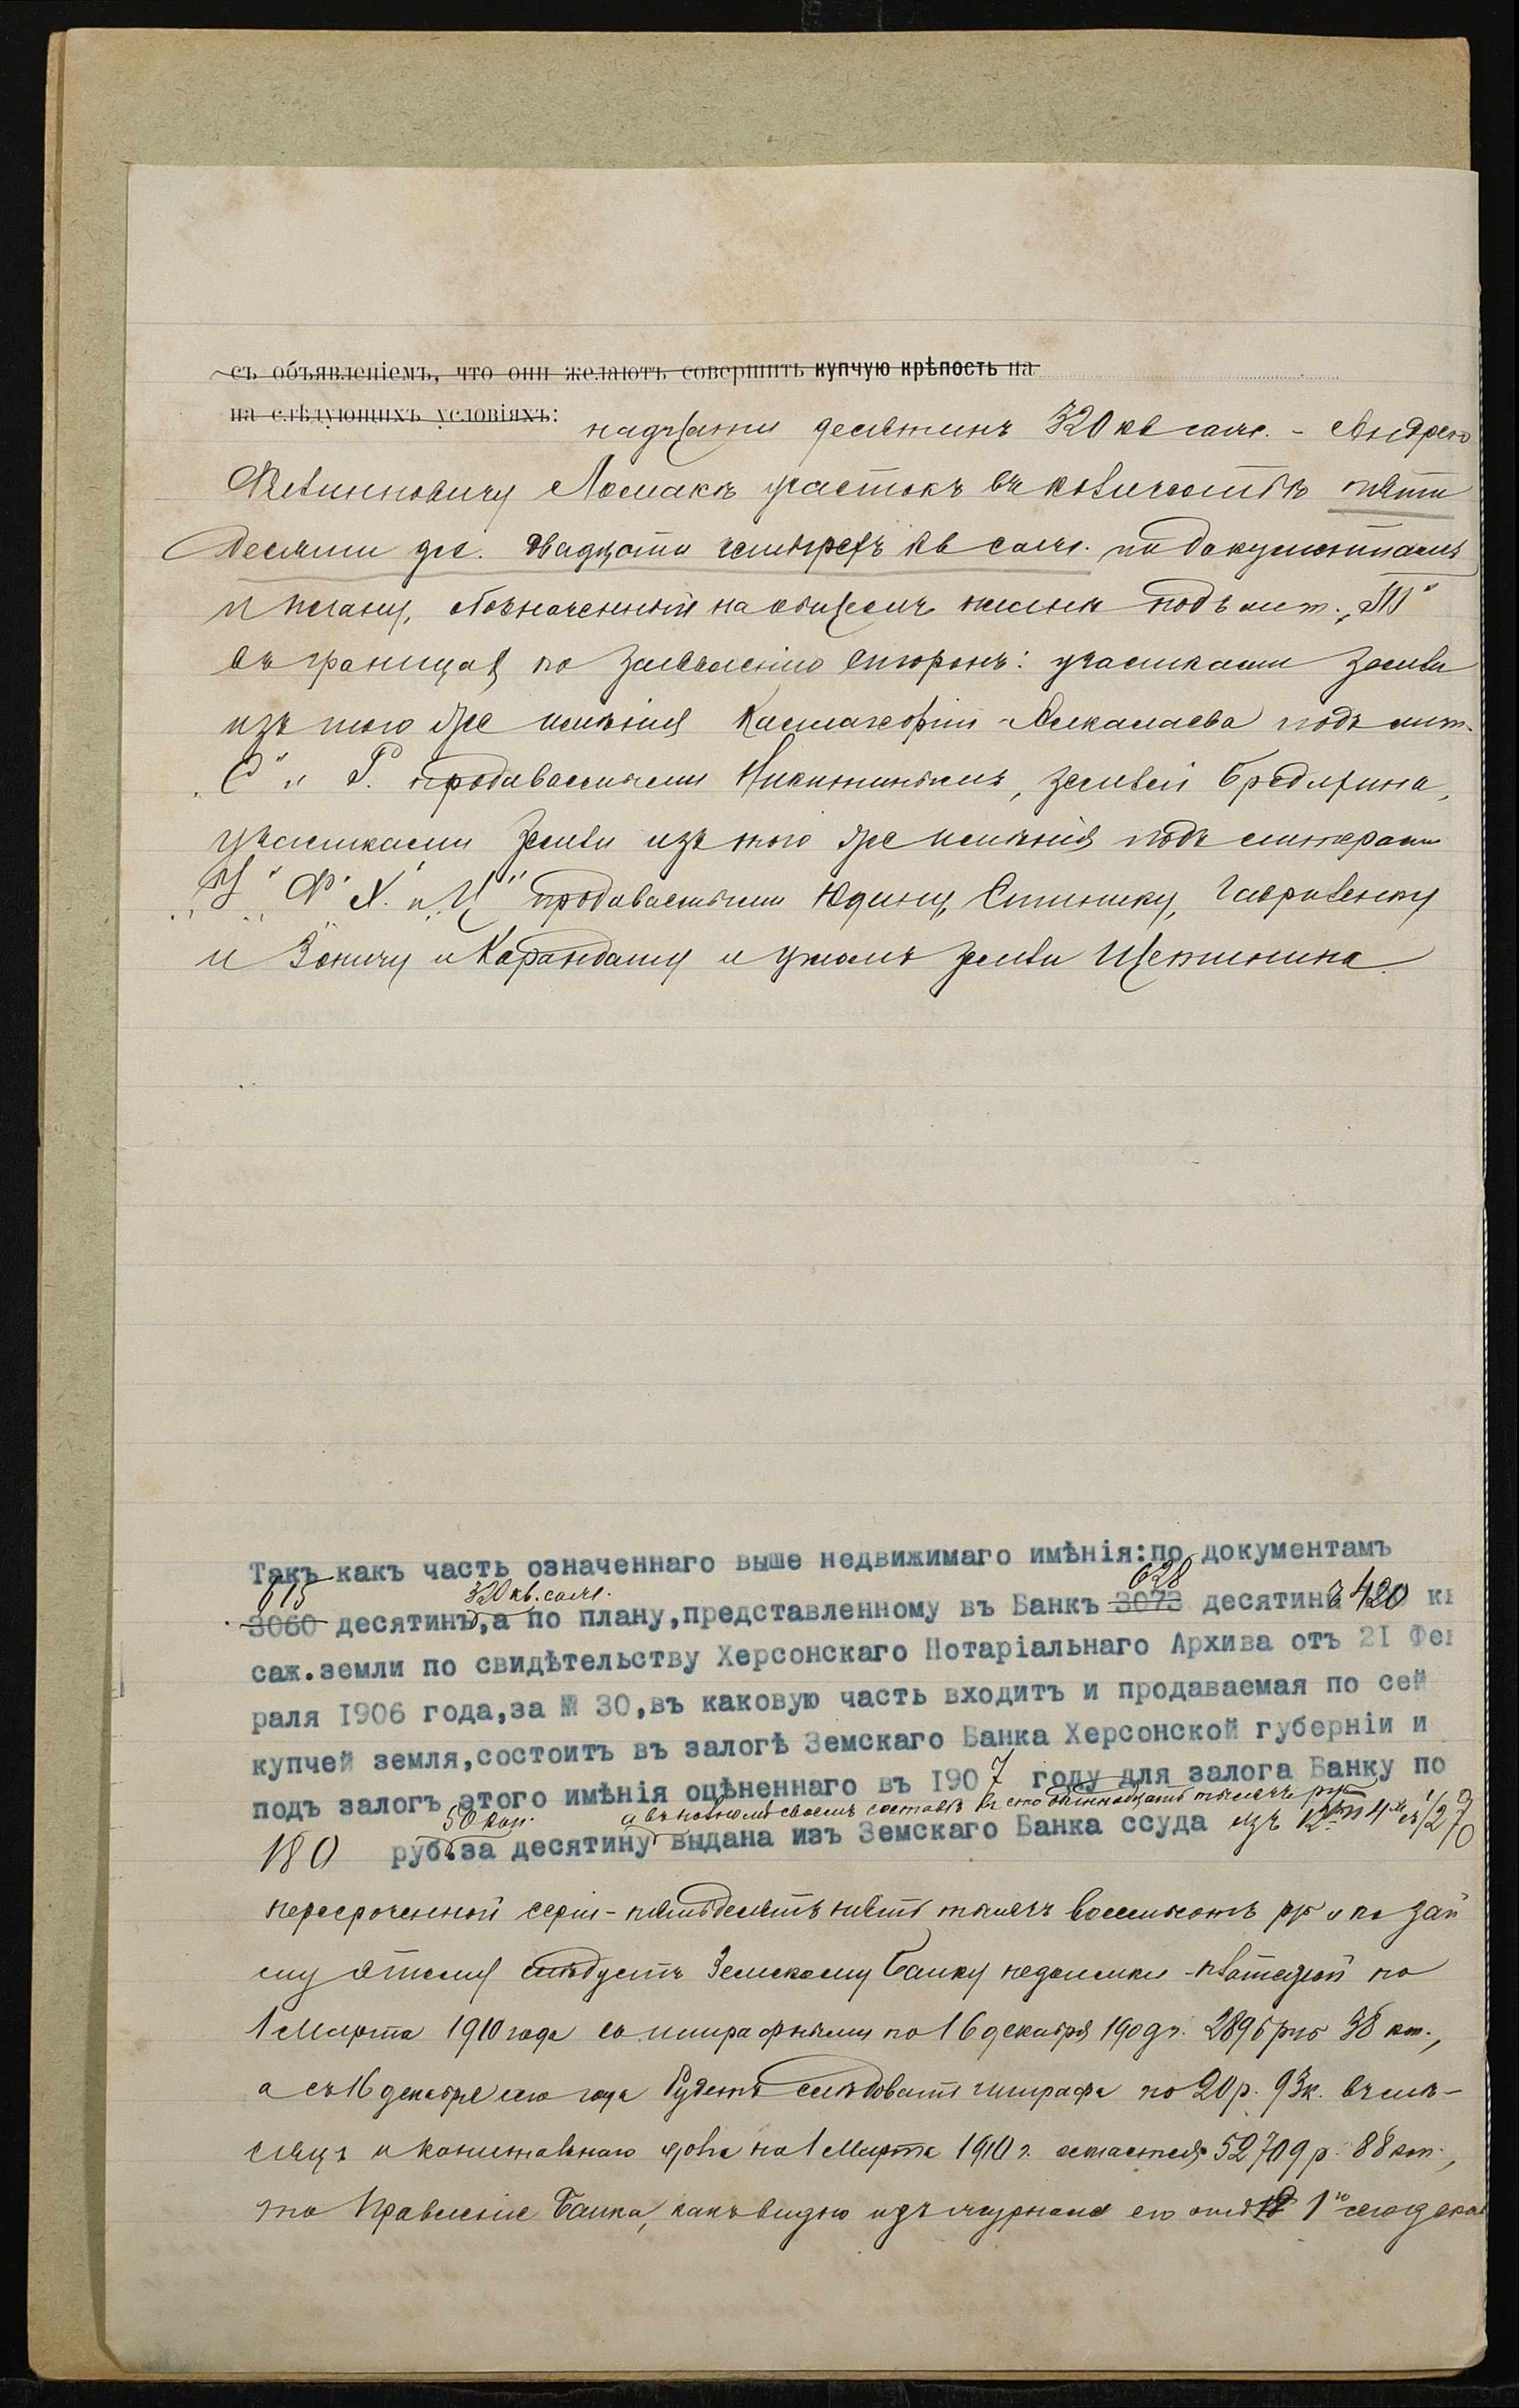 съ объявленіемъ, что они желаютъ совершить купчую крѣпость на
на слѣдующихъ условіяхъ: надцати десятинъ 320 кв саж. - Андрею
Ломакѣ участокъ въ количествѣ пяти
десяти дес. двадцати четырехъ кв саж. по документамъ
и плану, обозначенный на общемъ планѣ подъ лит. „Т"
въ границахъ по заявленію сторонъ: участками земли
изъ того же имѣнія подъ лит.
„С" и Р. продаваемыми Никитинымъ, землей Бредихина,
участками земли изъ того же имѣнія подъ литерами
„У" „Ф" Х. и „Ц" продаваемыми Юдину, Гавриленку
и Зоничу и Карандашу и угломъ земли Щепинина
Такъ какъ часть означеннаго выше недвижимаго имѣнія:по документамъ
615 320 кв. саж. 628
3060 десятинъ,а по плану,представленному въ Банкъ 3073 десятинъ 420 кв
саж.земли по свидѣтельству Херсонскаго Нотаріальнаго Архива отъ 21 Фев
раля 1906 года,за № 30,въ каковую часть входитъ и продаваемая по сей
купчей земля,состоитъ въ залогѣ Земскаго Банка Херсонской губерніи и
подъ залогъ этого имѣнія оцѣненнаго въ 1907 году для залога Банку по
50 коп. а въ полномъ своемъ составѣ въ сто тысячъ руб
180 руб.за десятину выдана изъ Земскаго Банка ссуда изъ 4 1/2 %
пересроченной серіи - пятьдесятъ пять тысячъ восемьсотъ руб и по зай
му этому слѣдуетъ Земскому Банку недоимки -платежей по
1 Марта 1910 года со штрафными по 16 декабря 1909 г. 2895 руб 38 коп.,
а съ 16 декабря сего года будетъ слѣдовать штрафа по 20 р. 93 к. въ мѣ-
сяцъ и капитальнаго долга на 1 Марта 1910 г. остается 52709 р. 88 коп.,
то Правленіе Банка, какъ видно изъ журнала его отъ 1го сего декаб